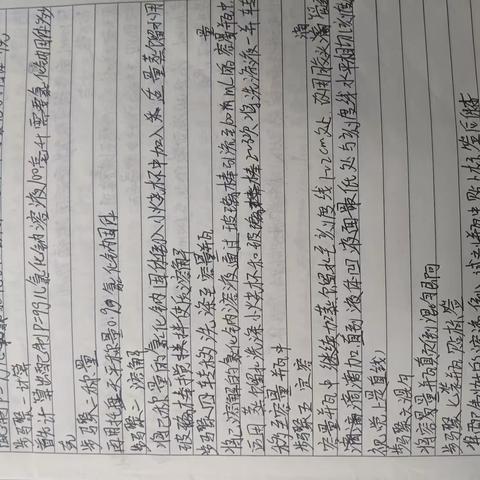 步骤一 计算
首先计算出配制ρ=9g/L氯化钠溶液100毫升需要氯化钠固体为
克
步骤二 称量
再用托盘天平称量0.9g氯化钠固体
步骤三 溶解
将已称量的氯化钠固体倒入小烧杯中加入适量蒸馏水用
玻璃棒搅拌使其溶解
步骤四 转移 洗涤至容量瓶
将已溶解的氯化钠溶液通过玻璃棒引流至100mL的容量瓶中
适用蒸馏水洗涤小烧杯和玻璃棒2~3次将洗涤液一并转
移至容量瓶中
步骤五 定容
容量瓶中继续加蒸馏水至刻度线1~2cm处 改用胶头滴管
滴滴加直到液体凹液面最低处与刻度线水平相切
视觉上是直线
步骤六 混匀
将容量瓶颠倒混匀即可
步骤七 装瓶贴标签